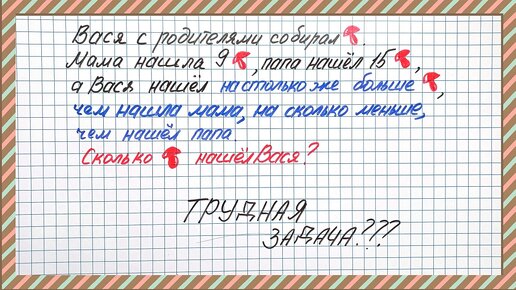 Вася с родителями собирал
Мама нашла 9 , папа нашёл 15 ,
а Вася нашёл настолько же больше ,
чем нашла мама, на сколько меньше,
чем нашёл папа.
Сколько нашёл Вася?
ТРУДНАЯ
ЗАДАЧА???